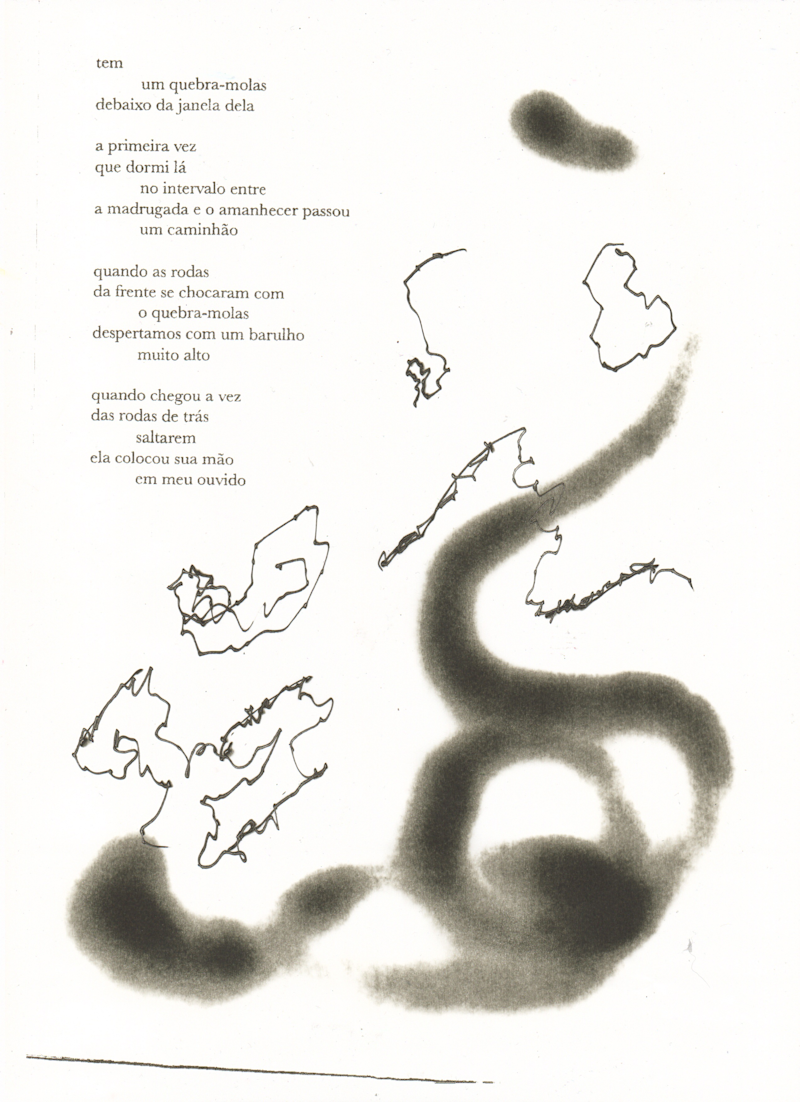 tem
um quebra-molas
debaixo da janela dela
a primeira vez
que dormi lá
no intervalo entre
a madrugada e o amanhecer passou
um caminhão
quando as rodas
da frente se chocaram com
o quebra-molas
despertamos com um barulho
muito alto
quando chegou a vez
das rodas de trás
saltarem
ela colocou sua mão
em meu ouvido